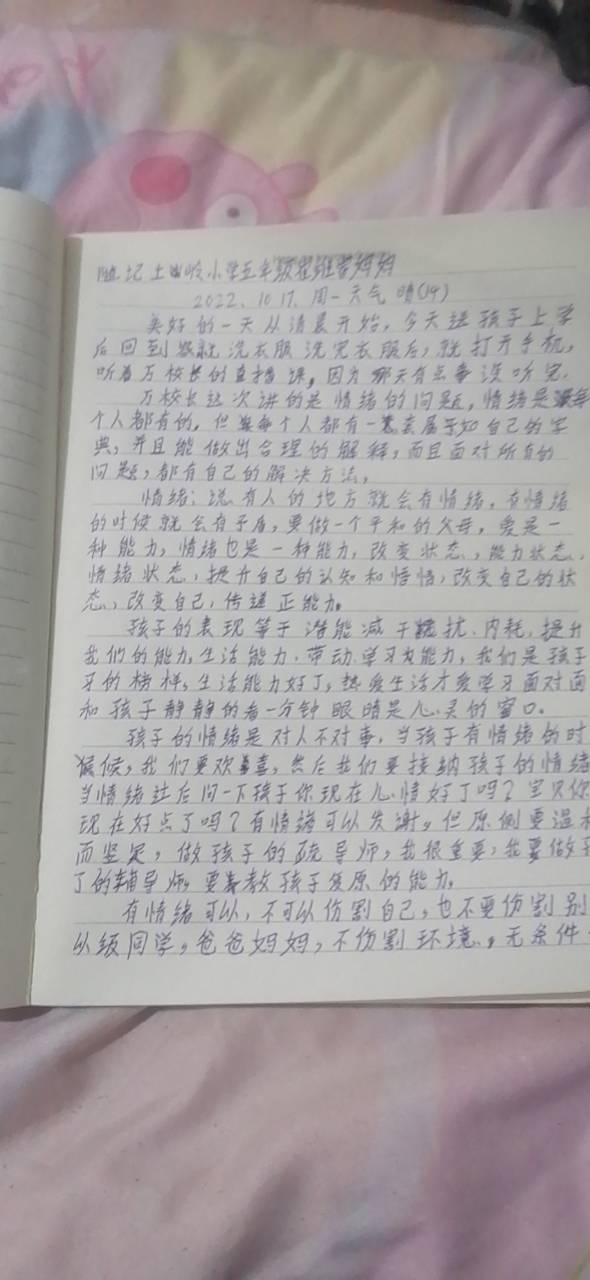 随记土山岭小学五年级 班 妈妈
2022.10.17.周一天气 晴(14)
美好的一天从清晨开始,今天送孩子上学
后回到家就洗衣服洗完衣服后,就打开手机,
听着万校长的直播课,因为那天有点事没听完.
万校长这次讲的是情绪的问题,情绪是每
个人都有的,但每个人都有一套属于如自己的字
典,并且能做出合理的解释,而且面对所有的
问题,都有自己的解决方法,
情绪:说有人的地方就会有情绪,有情绪
的时候就会有矛盾,要做一个平和的父母,爱是一
种能力,情绪也是一种能力,改变状态,能力状态,
情绪状态,提升自己的认知和悟悟,改变自己的状
态,改变自己,传递正能力。
孩子的表现等于潜能减干扰、内耗,提升
我们的能力,生活能力,带动学习为能力,我们是孩子
牙的榜样,生活能力好了,热爱生活才爱学习面对面
和孩子静静的看一分钟眼睛是心灵的窗口。
孩子的情绪是对人不对事,当孩子有情绪的时
候候,我们要欢喜,然后我们要接纳孩子的情绪
当情绪过后问一下孩子你现在心情好了吗?宝贝你
现在好点了吗?有情绪可以发谢,但原侧要温和
而坚定,做孩子的疏导师,我很重要,我要做孩
了的辅导师,要教孩子复原的能力。
有情绪可以,不可以伤割自己,也不要伤割别
从须同学,爸爸妈妈,不伤割环境,无条件